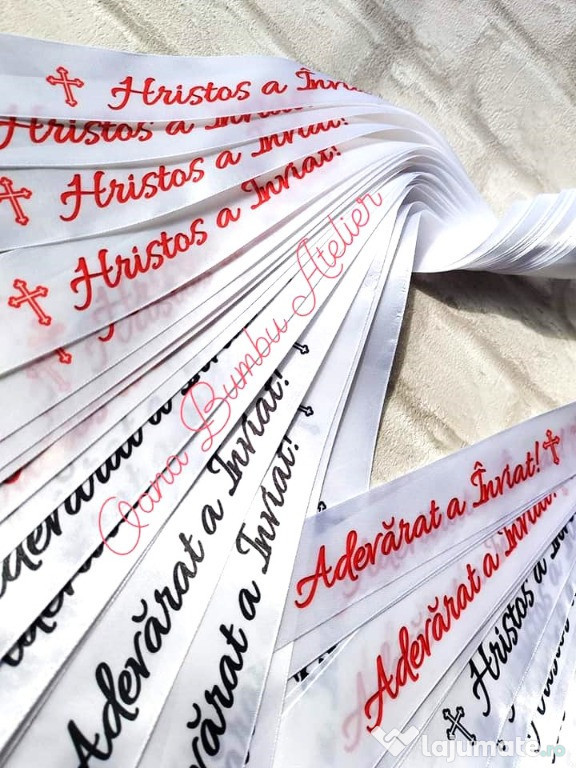 Hristos a Înviat!
Hristos a Înviat!
Hristos a Înviat!
Hristos a Înviat!
Oana Bumbu Atelier
Adevărat a Înviat!
Adevărat a Înviat!
Adevărat a Înviat!
Adevărat a Înviat!
Adevărat a Înviat!
Hristos a Înviat!
lajumate.ro